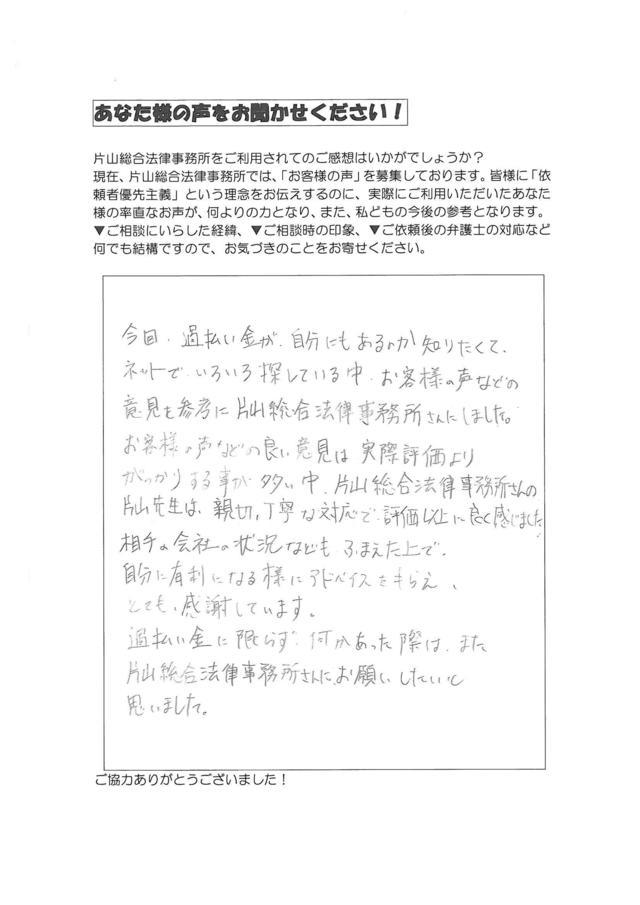 あなた様の声をお聞かせください！
片山総合法律事務所をご利用されてのご感想はいかがでしょうか？
現在、片山総合法律事務所では、「お客様の声」を募集しております。皆様に「依
頼者優先主義」という理念をお伝えするのに、実際にご利用いただいたあなた
様の率直なお声が、何よりの力となり、また、私どもの今後の参考となります。
▼ご相談にいらした経緯、▼ご相談時の印象、▼ご依頼後の弁護士の対応など
何でも結構ですので、お気づきのことをお寄せください。
今回、過払い金が、自分にもあるのか知りたくて、
ネットで、いろいろ探している中、お客様の声などの
意見を参考に片山総合法律事務所さんにしました。
お客様の声などの良い意見は実際評価より
がっかりする事が多い中、片山総合法律事務所さんの
片山先生は、親切、丁寧な対応で、評価以上に良く感じました。
相手の会社の状況などもふまえた上で、
自分に有利になる様にアドバイスをもらえ、
とても、感謝しています。
過払い金に限らず、何かあった際は、また
片山総合法律事務所さんに、お願いしたいと
思いました。
ご協力ありがとうございました！